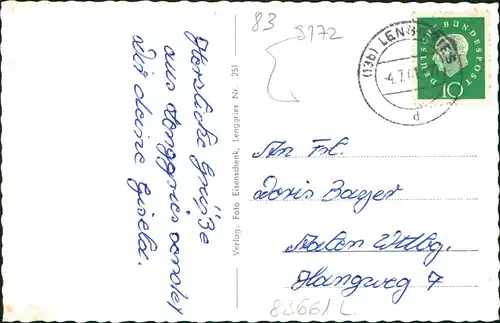 Herzliche Grüße
aus Lenggries sendet
Dir deine Gisela.
Verlag: Foto Eisenschenk, Lenggries Nr. 251
83
S172
(13b) LENGGRIES
-4.7.61
d
DEUTSCHE BUNDESPOST
10
An Frl.
Doris
Aalen Wttbg.
Hangweg 7
83661 L.